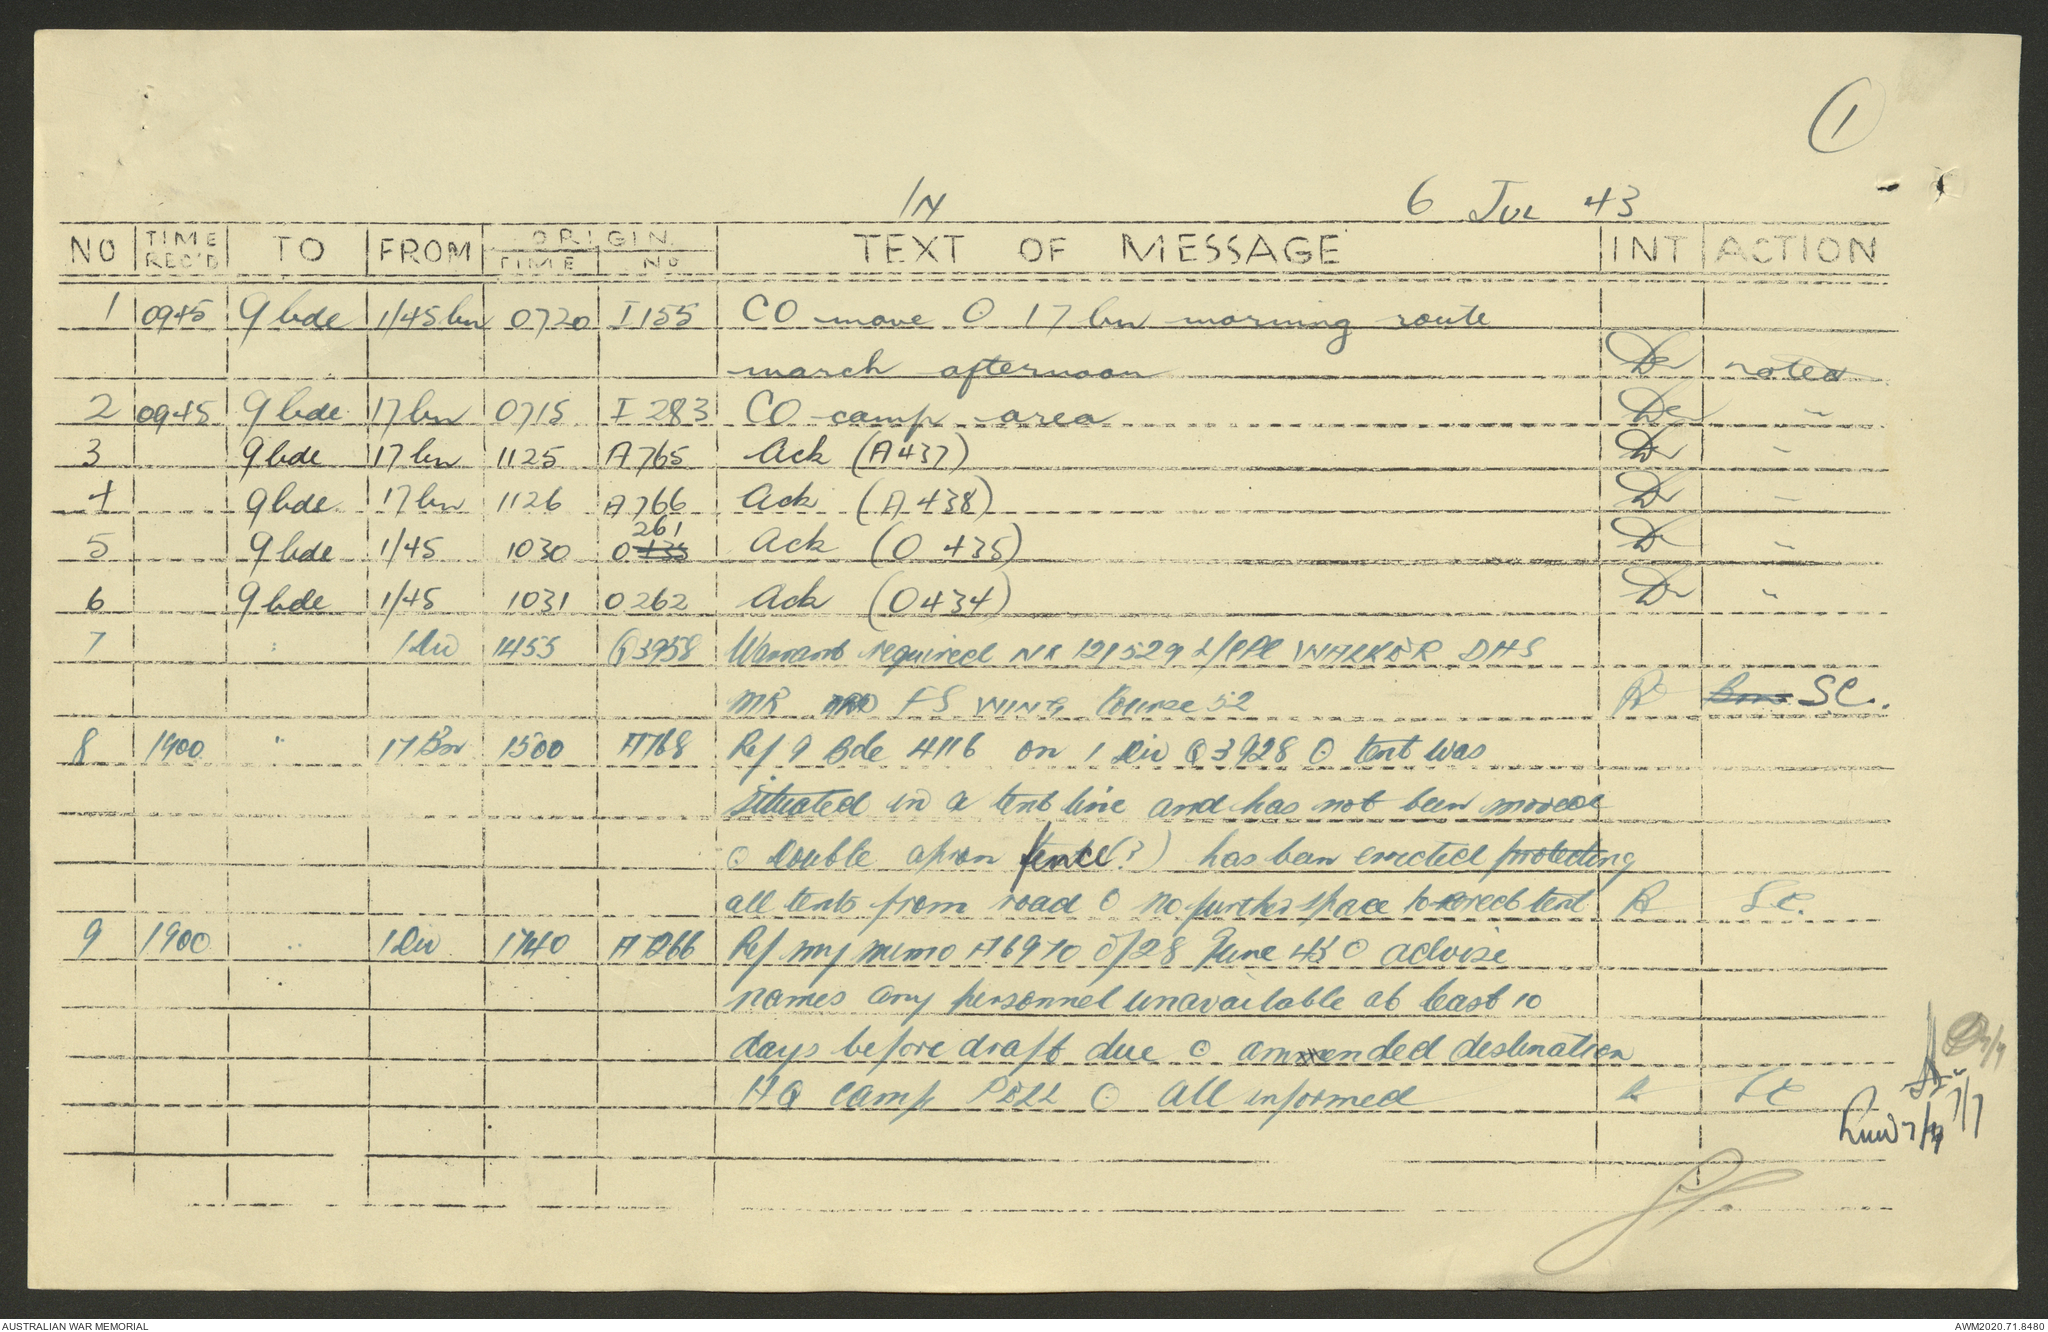 1
IN 6 JUL 43
NO TIME REC'D TO FROM ORIGIN TIME NO TEXT OF MESSAGE INT ACTION
1 0945 9 bde 1/45 bn 0720 I 155 CO move O 17 bn morning route
march afternoon noted
2 0945 9 bde 17 bn 0715 I 283 CO camp area "
3 9 bde 17 bn 1125 A765 Ack (A437) "
4 9 bde 17 bn 1126 A766 Ack (A 438) "
5 9 bde 1/45 1030 O 261 Ack (O 435) "
6 9 bde 1/45 1031 O 262 Ack (O 434) "
7 " 1 Div 1455 Q3958 Warrant required NX 121529 L/CPL WALKER DHS
MR FS WING Course 52 SC.
8 1900 " 17 Bn 1500 A768 Ref 9 Bde 4116 on 1 Div Q3928 O tent was
situated in a tent line and has not been moved
O Double apron fence (?) has been erected protecting
all tents from road O No further space to erect tent SC.
9 1900 " 1 Div 1740 A7266 Ref my memo A6970 of 28 June 43 O advise
names any personnel unavailable at least 10
days before draft due O amended destination
HQ Camp PELL O all informed SC
7/7
7/7
7/7
AUSTRALIAN WAR MEMORIAL AWM2020.71.8480